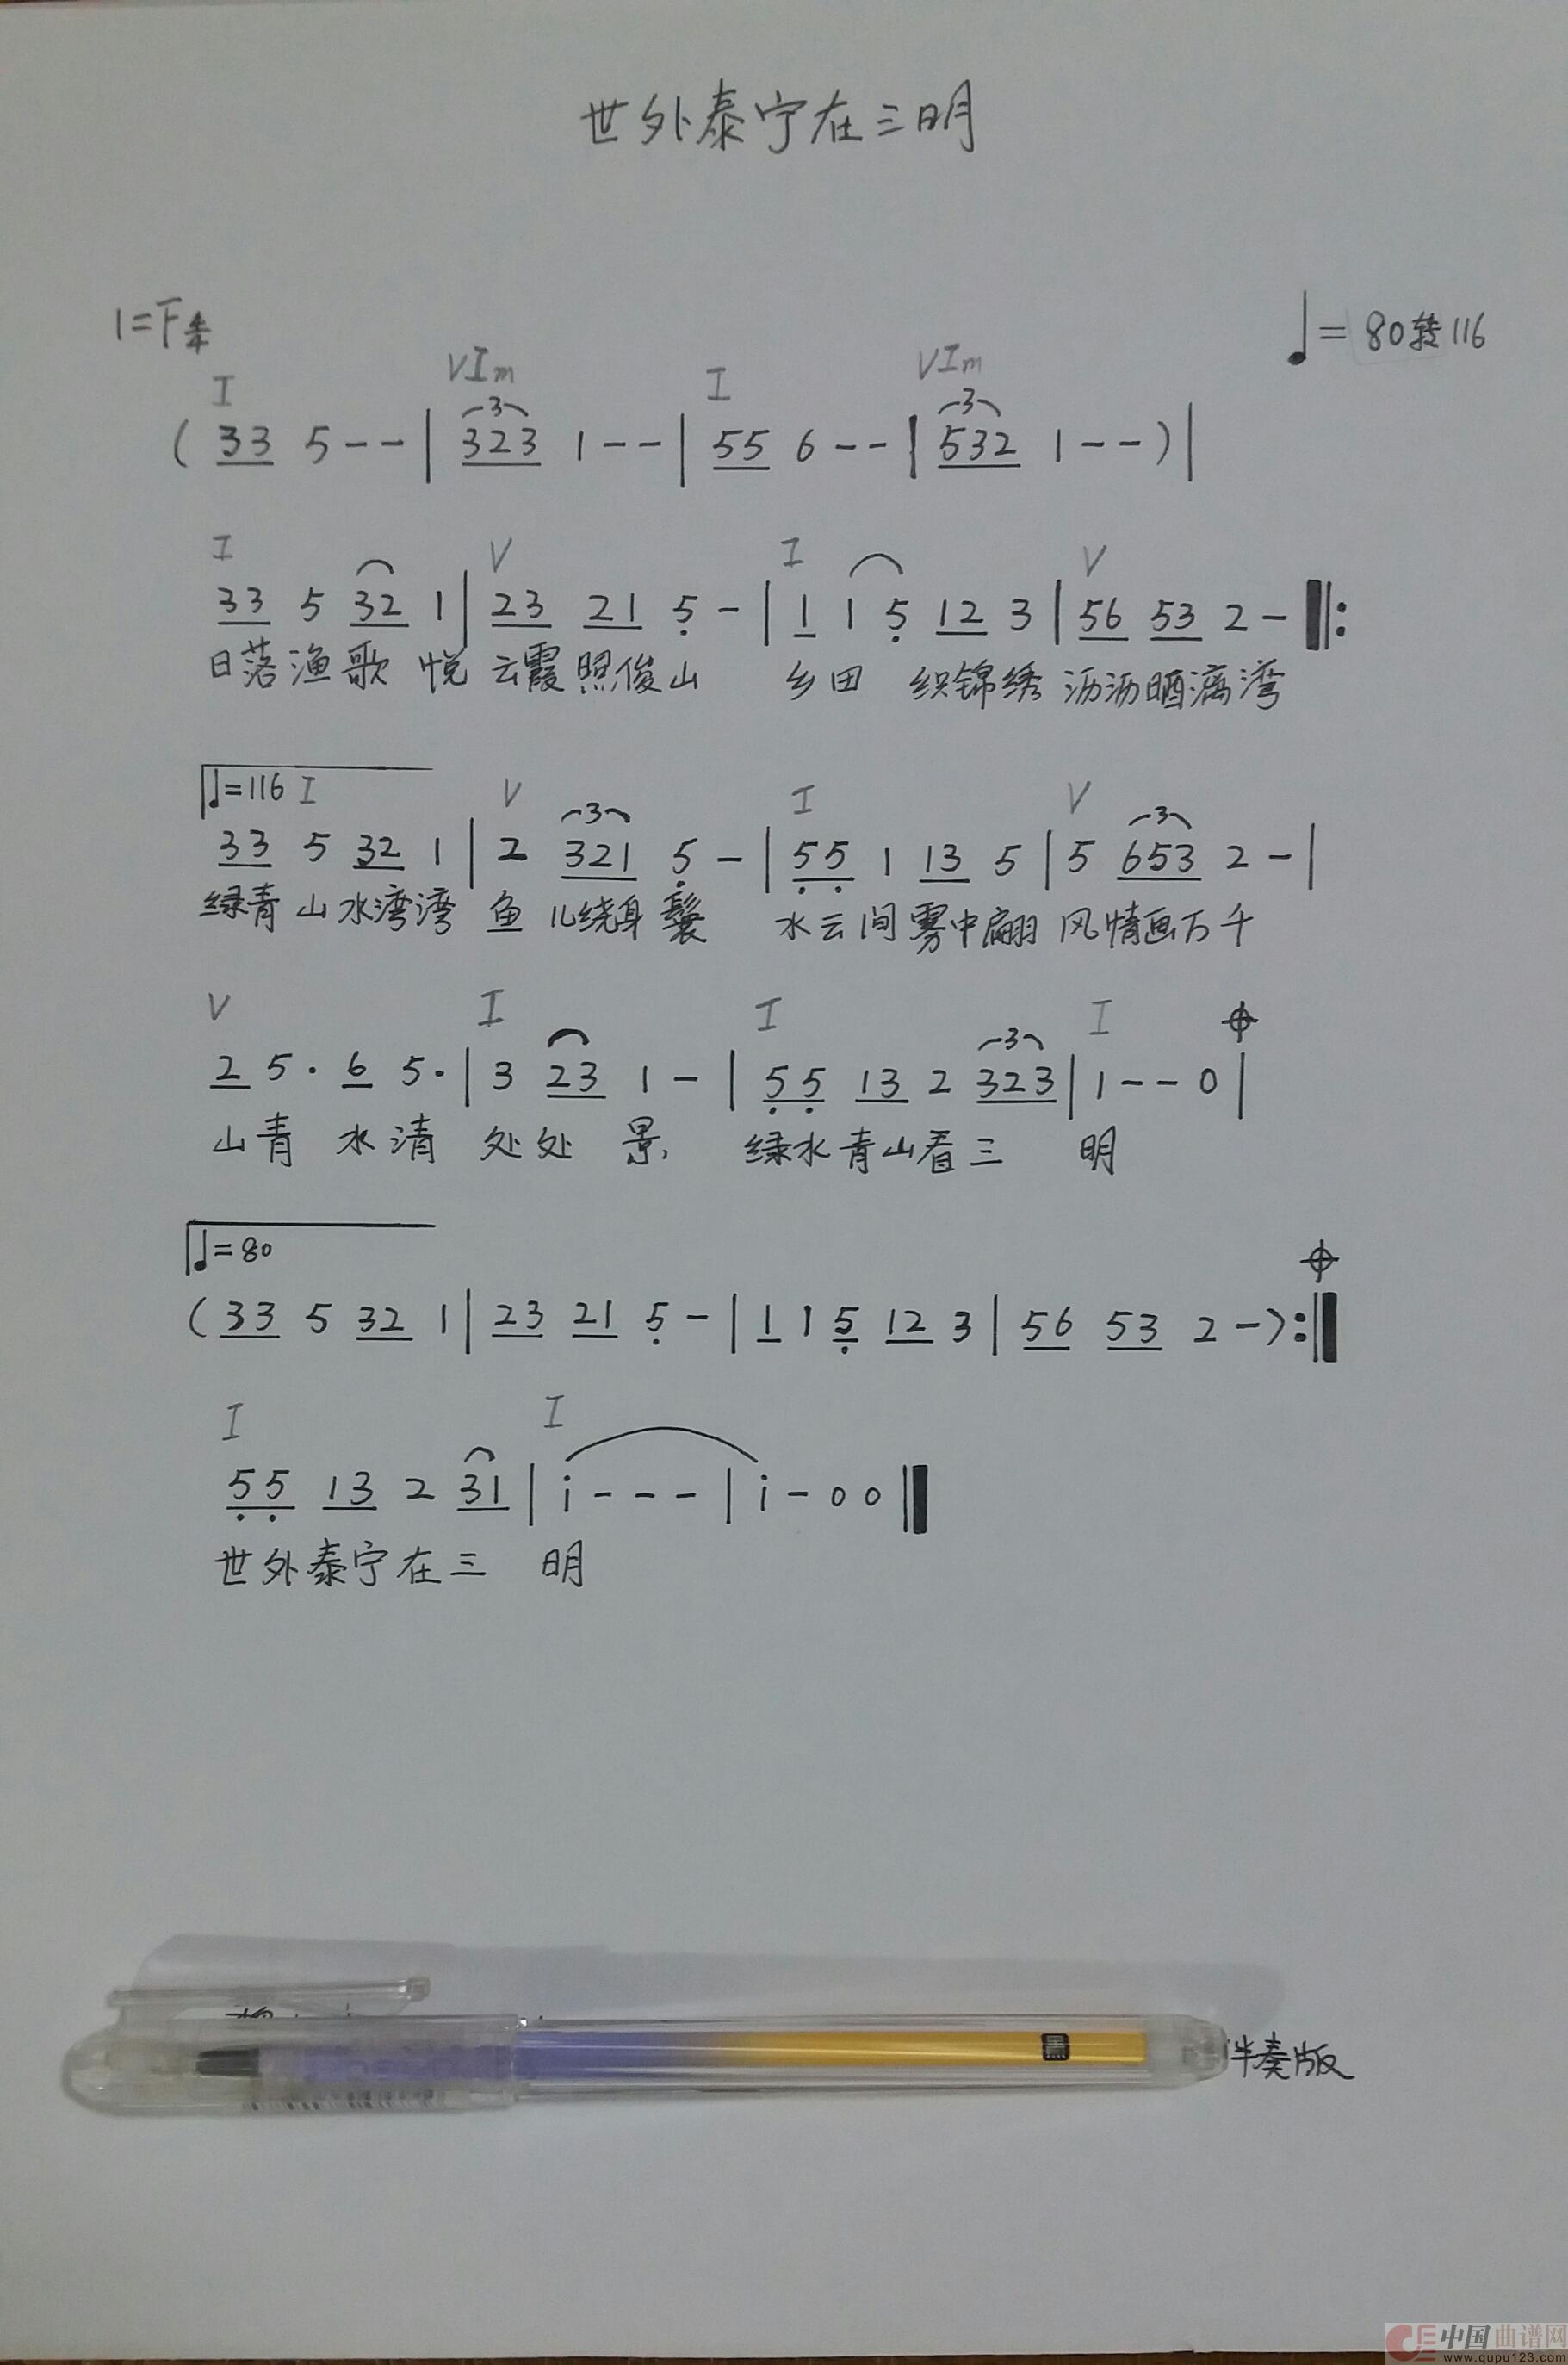 世外泰宁在三明
1=F 4/4
♩= 80转116
I VIm I VIm
( 33 5 - - | 323 1 - - | 55 6 - - | 532 1 - - ) |
I V I V
33 5 32 1 | 23 21 5̣ - | 1 1 5̣ 12 3 | 56 53 2 - ‖:
日落渔歌 悦 云霞照俊山 乡田 织锦绣 沥沥晒漓湾
♩=116 I V I V
33 5 32 1 | 2 321 5̣ - | 5̣5̣ 1 13 5 | 5 653 2 - |
绿青山水湾湾 鱼儿绕身鬟 水云间雾中翩 风情画万千
V I I I
2 5· 6 5· | 3 23 1 - | 5̣5̣ 13 2 323 | 1 - - 0 |
山青 水清 处处 景, 绿水青山看三 明
♩=80
( 33 5 32 1 | 23 21 5̣ - | 1 1 5̣ 12 3 | 56 53 2 - ) :‖
I I
5̣5̣ 13 2 31 | i - - - | i - 0 0 ‖
世外泰宁在三 明
伴奏版
中国曲谱网
www.qupu123.com